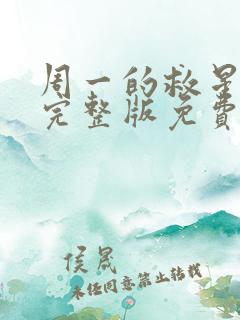 周一的救星
完整版免费
侯晟
未经同意禁止转载